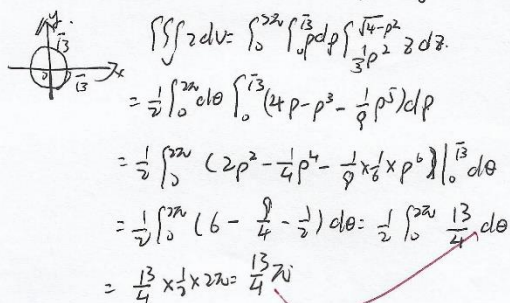 y
√3
∫∫∫ z dv = ∫₀^{2π} ∫₀^{√3} ρdρ ∫_{1/3 ρ²}^{√(4-ρ²)} z dz.
0 √3 x
= 1/2 ∫₀^{2π} dθ ∫₀^{√3} (4ρ - ρ³ - 1/9 ρ⁵) dρ
= 1/2 ∫₀^{2π} (2ρ² - 1/4 ρ⁴ - 1/9 × 1/6 × ρ⁶) |₀^{√3} dθ
= 1/2 ∫₀^{2π} (6 - 9/4 - 1/2) dθ = 1/2 ∫₀^{2π} 13/4 dθ
= 13/4 × 1/2 × 2π = 13/4 π